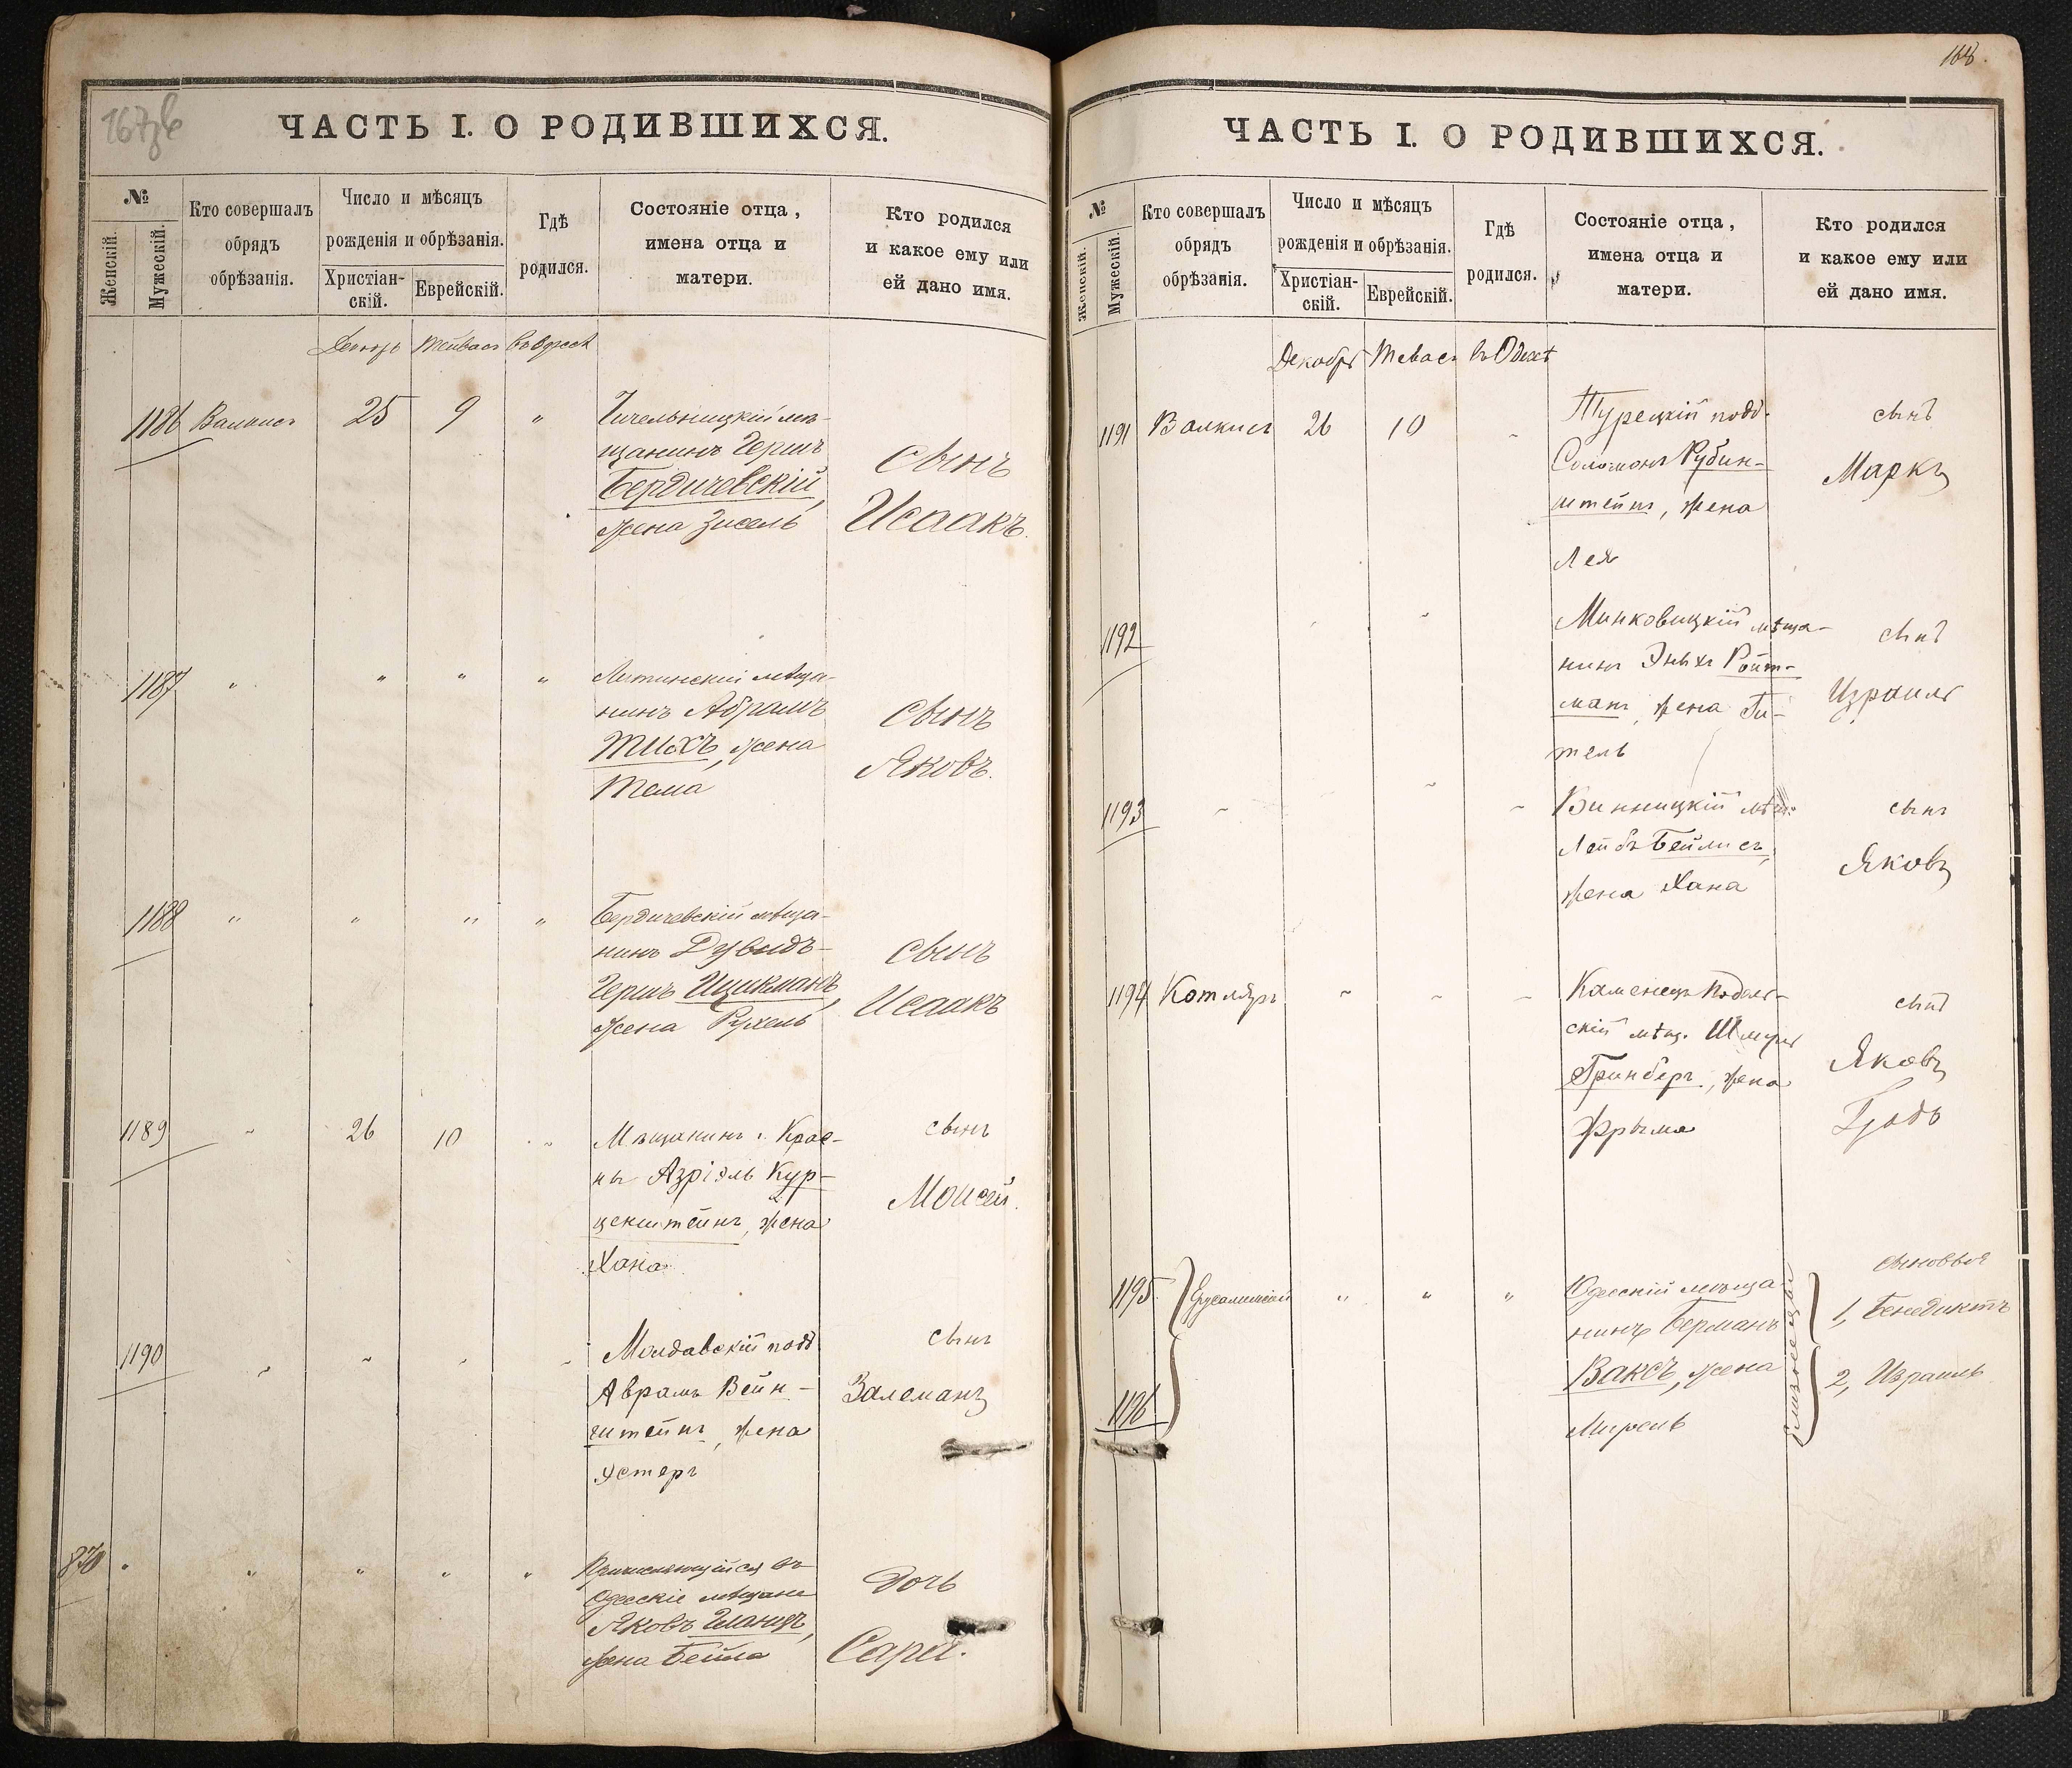 167об
ЧАСТЬ I. О РОДИВШИХСЯ.
№
Женскій.
Мужескій.
Кто совершалъ
обрядъ
обрѣзанія.
Число и мѣсяцъ
рожденія и обрѣзанія.
Христіан-
скій.
Еврейскій.
Гдѣ
родился.
Состояніе отца,
имена отца и
матери.
Кто родился
и какое ему или
ей дано имя.
Тейвасъ
1186
25
9
"
мѣ-
щанинъ Гершъ
Бердичевскій,
жена Зисель
сынъ
Исаакъ.
1187
"
"
"
"
Литинскій мѣща-
нинъ Абрамъ
жена
сынъ
Яковъ.
1188
"
"
"
"
Бердичевскій мѣща-
нинъ Дувидъ-
Гершъ Ицикманъ,
жена Рухель
сынъ
Исаакъ
1189
"
26
10
"
Мѣщанинъ г. Крас-
ны Азріэль Кур-
ценштейнъ, жена
Хана
сынъ
Моисей.
1190
"
"
"
"
Молдавскій подд
Аврамъ Вейн-
штейнъ, жена
Эстеръ
сынъ
Залеманъ
870
"
"
"
"
"
Причисляющійся въ
Одесскіе мѣщане
Яковъ
жена Бейла
дочь
Сара.
168.
ЧАСТЬ I. О РОДИВШИХСЯ.
№
Женскій.
Мужескій.
Кто совершалъ
обрядъ
обрѣзанія.
Число и мѣсяцъ
рожденія и обрѣзанія.
Христіан-
скій.
Еврейскій.
Гдѣ
родился.
Состояніе отца,
имена отца и
матери.
Кто родился
и какое ему или
ей дано имя.
Декабрь Тевасъ въ Одессѣ
1191
Валкисъ
26
10
"
Турецкій подд.
Соломонъ Рубин-
штейнъ, жена
Лея
сынъ
Маркъ
1192
"
"
Миньковицкій мѣща-
нинъ Эныхъ Ройт-
манъ, жена Ги-
тель
сынъ
Израиль
1193
"
"
"
Винницкій мѣщ.
Лейбъ Бейлисъ,
жена Хана
сынъ
Яковъ
1194
Котляръ
"
"
"
Каменецъ Подоль-
скій мѣщ. Шмуль
Гринбергъ, жена
Фрыма
сынъ
Яковъ
1195
1196
Ерусалимскій
"
"
"
Одесскій мѣща-
нинъ Германъ
Ваксъ, жена
Мирель
близнецы
сыновья
1, Бенедиктъ
2, Израиль